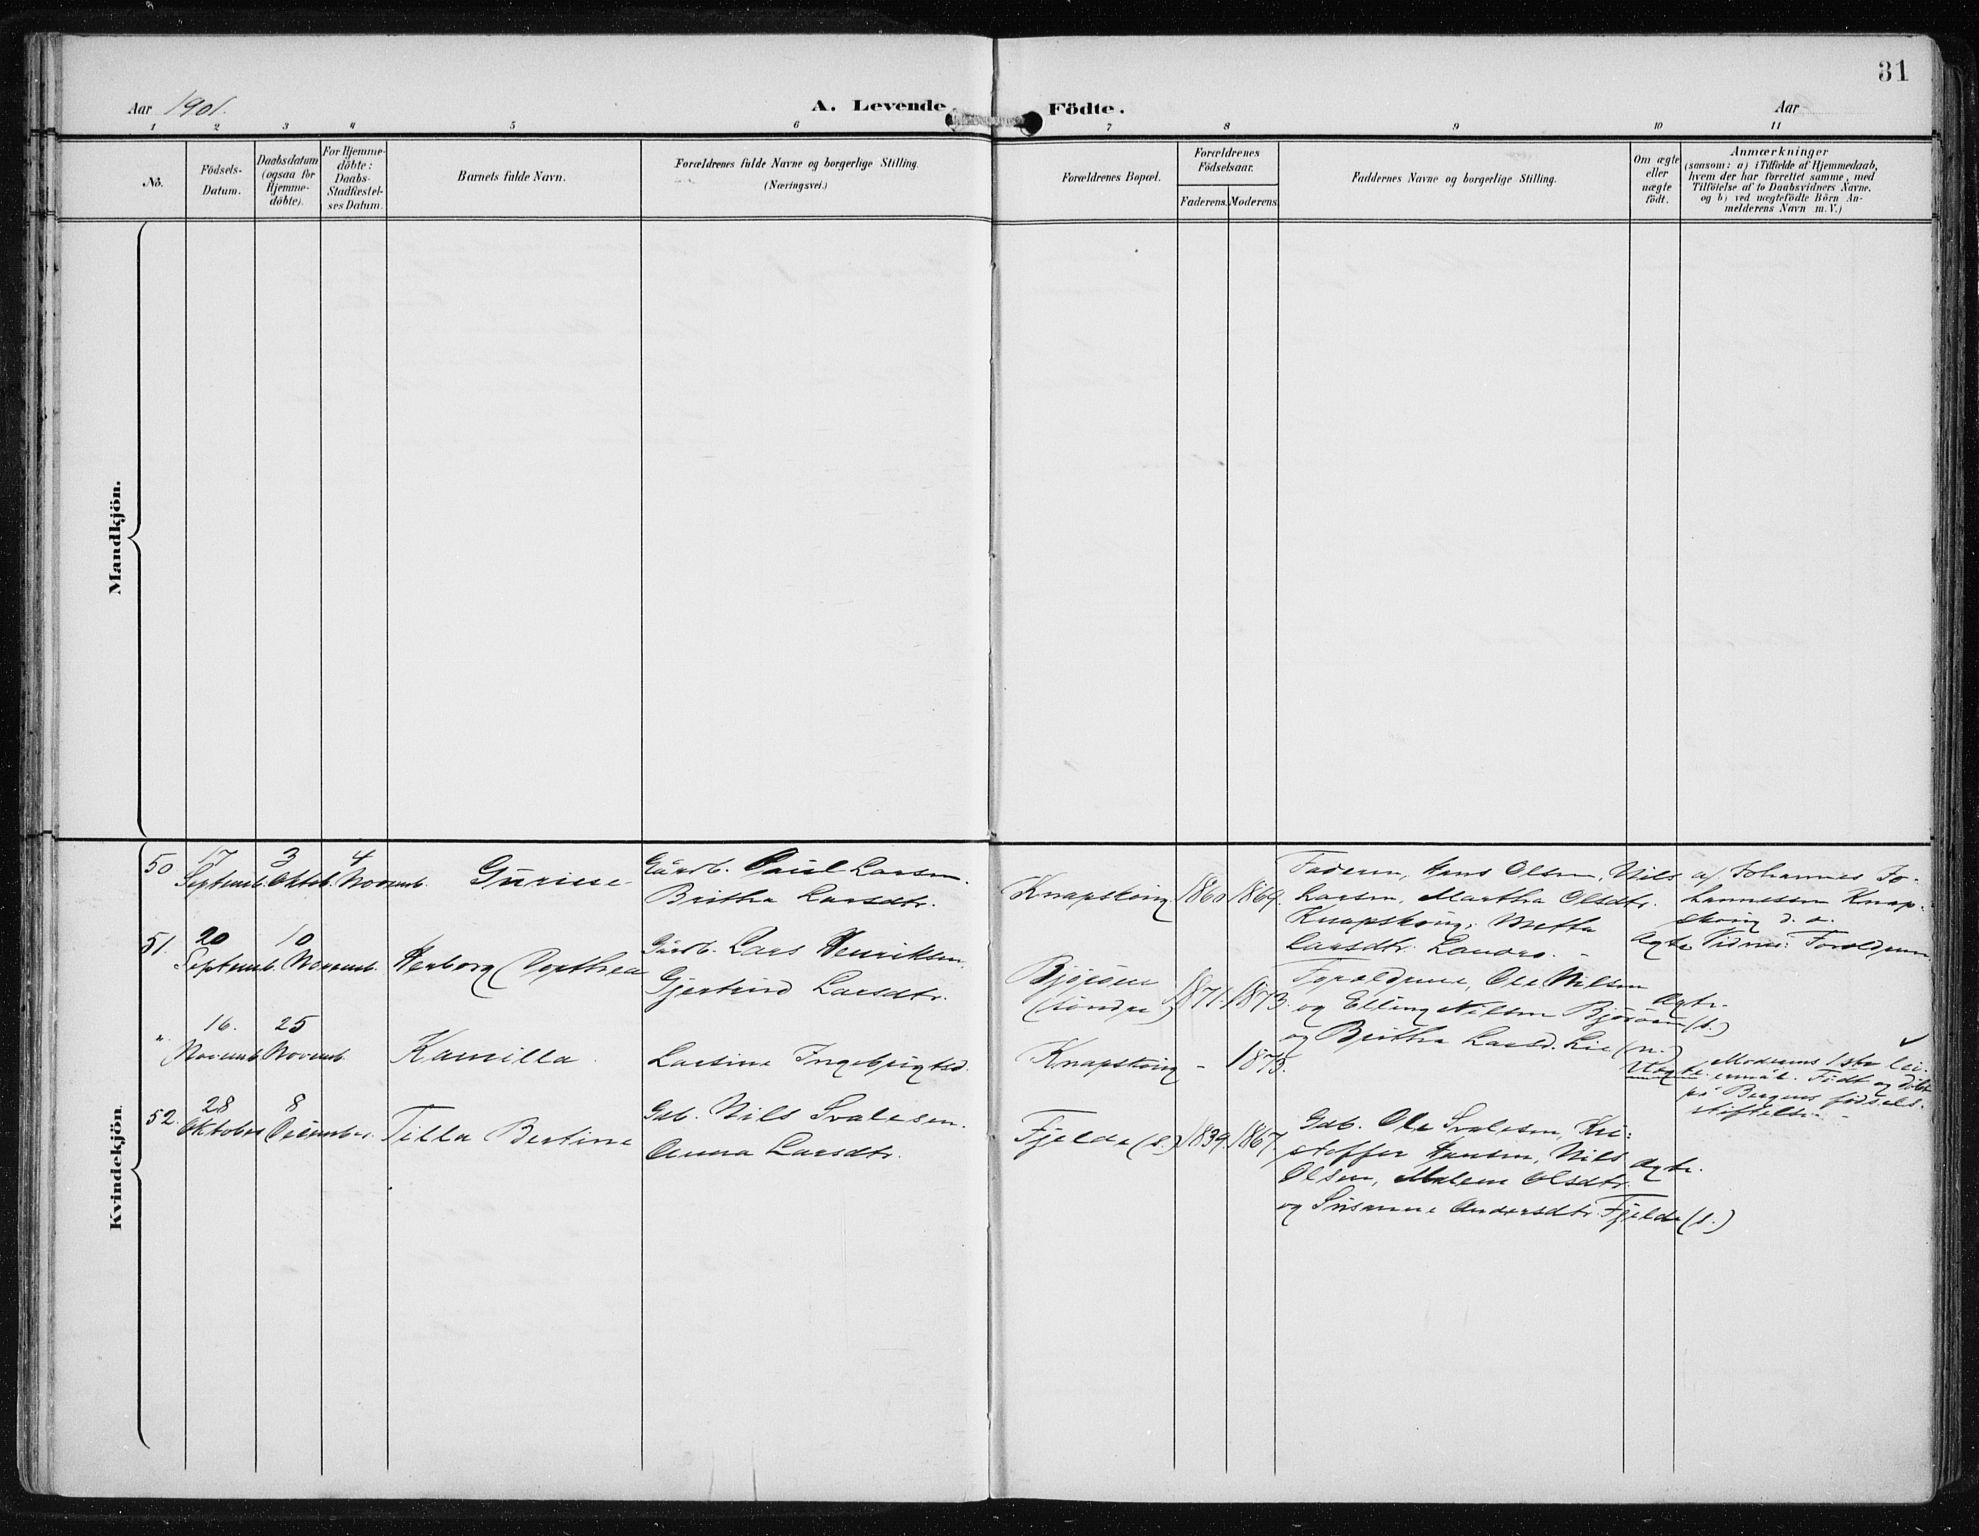 31
Aar 1901.
A. Levende Födte.
Aar
1 2 3 4 5 6 7 8 9 10 11
No.
Födsels-
Datum.
Daabsdatum
(ogsaa for
Hjemme-
döbte).
For Hjemme-
döbte:
Daabs-
Stadfæstel-
ses Datum.
Barnets fulde Navn.
Forældrenes fulde Navne og borgerlige Stilling.
(Næringsvei.)
Forældrenes Bopæl.
Forældrenes
Födselsaar.
Faderens. Moderens.
Faddernes Navne og borgerlige Stilling.
Om ægte
eller
uægte
født.
Anmærkninger
(saasom: a) i Tilfælde af Hjemmedaab,
hvem der har forrettet samme, med
Tilföielse af to Daabsvidners Navne.
og b) ved uægtefödte Börn An-
melderens Navn m. V.)
Mandkjön.
Kvindekjön.
50
17
Septemb.
3
Oktob.
4
Novemb.
Gurine
Gårdb. Paul Larsen.
Britha Larsdtr.
Knapskòig
1860
1869.
Faderen, Hans Olsen, Nils
Larsen, Martha Olsdtr.
Knapskòig, Metha
Larsdtr. Landro.
Ægte
a/ Johannes Jo-
hannessen Knap-
skòig d. a.
Vidner: Forældrene
51.
20
Septemb.
10
Novemb.
Herborg Dorthea
Gårdb. Lars Henriksen.
Gjertrud Larsdtr.
Bjòròen
(søndre)
1871.
1873.
Forældrene, Ole Nilsen
og Elling Nilsen Bjòròen (s.)
og Britha Larsd. Lie (n.)
Ægte.
"
16.
Novemb.
25
Novemb.
Kamilla.
Larsine Ingebrigtsd.
Knapskòig
-
1875.
Uægte.
Moderens 1ste lei-
ermål. Født og døbt
på Bergens fødsels-
stiftelse.
52.
28
Oktober
8
Desember.
Tilla Bertine
Gdb. Nils Svalesen.
Anna Larsdtr.
Fjelde (s.)
1839.
1867.
Gdb. Ole Svalesen, Kri-
stoffer Hansen, Nils
Olsen, Malene Olsdtr.
og Susanne Andersdtr. Fjelde (s.)
Ægte.